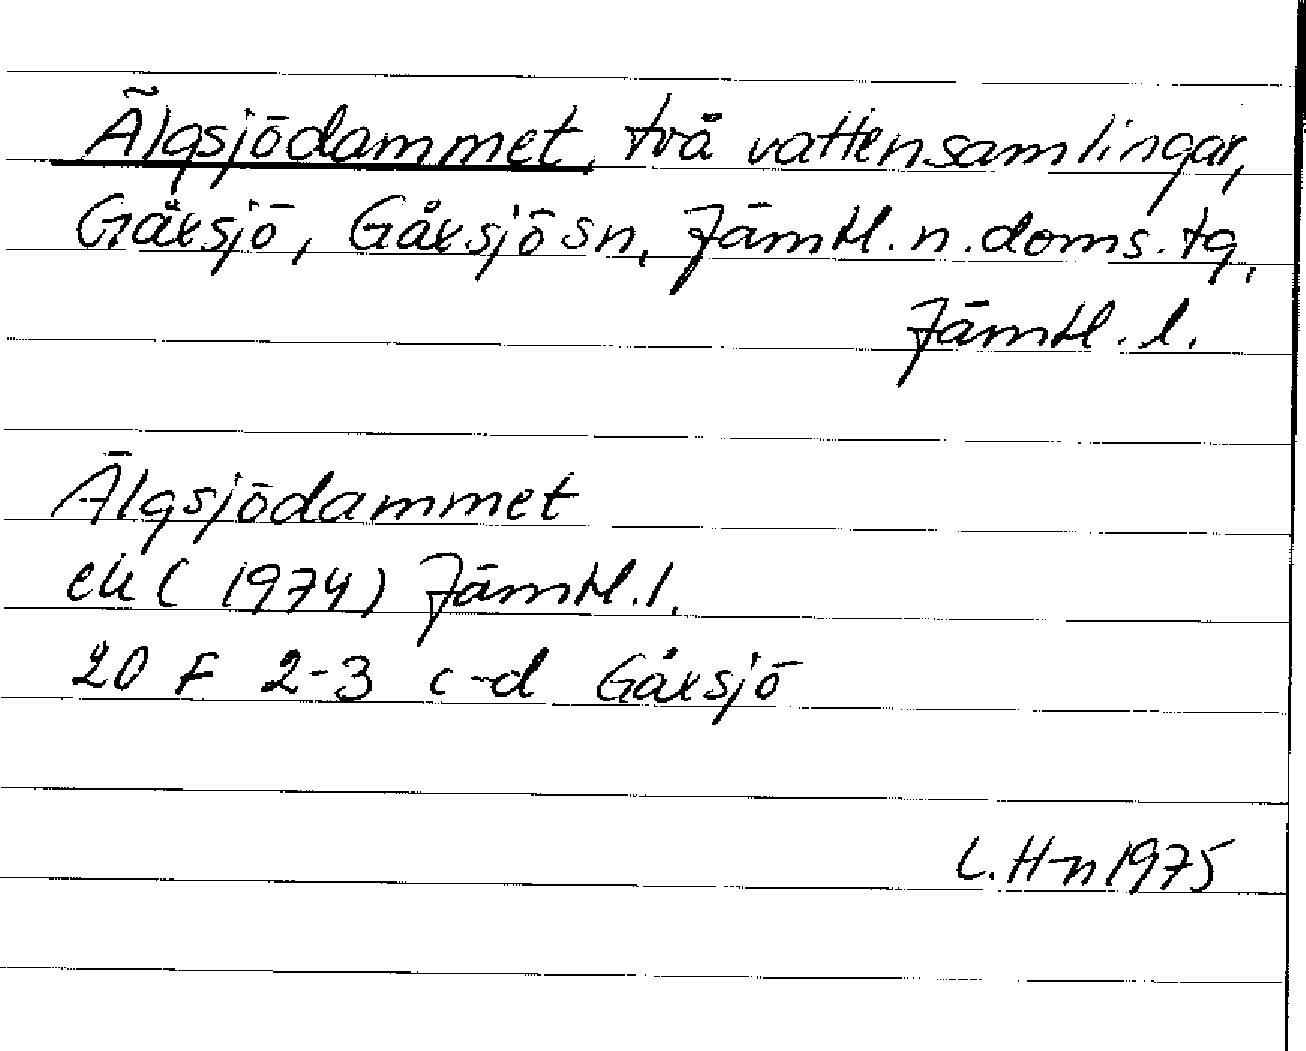 Älgsjödammet, två vattensamlingar,
Gåxsjö, Gåxsjö sn, Jämtl. n. doms. tg,
Jämtl. l.
Älgsjödammet
ek (1974) Jämtl. l.
20 F 2-3 c-d Gåxsjö
L. H-n 1975